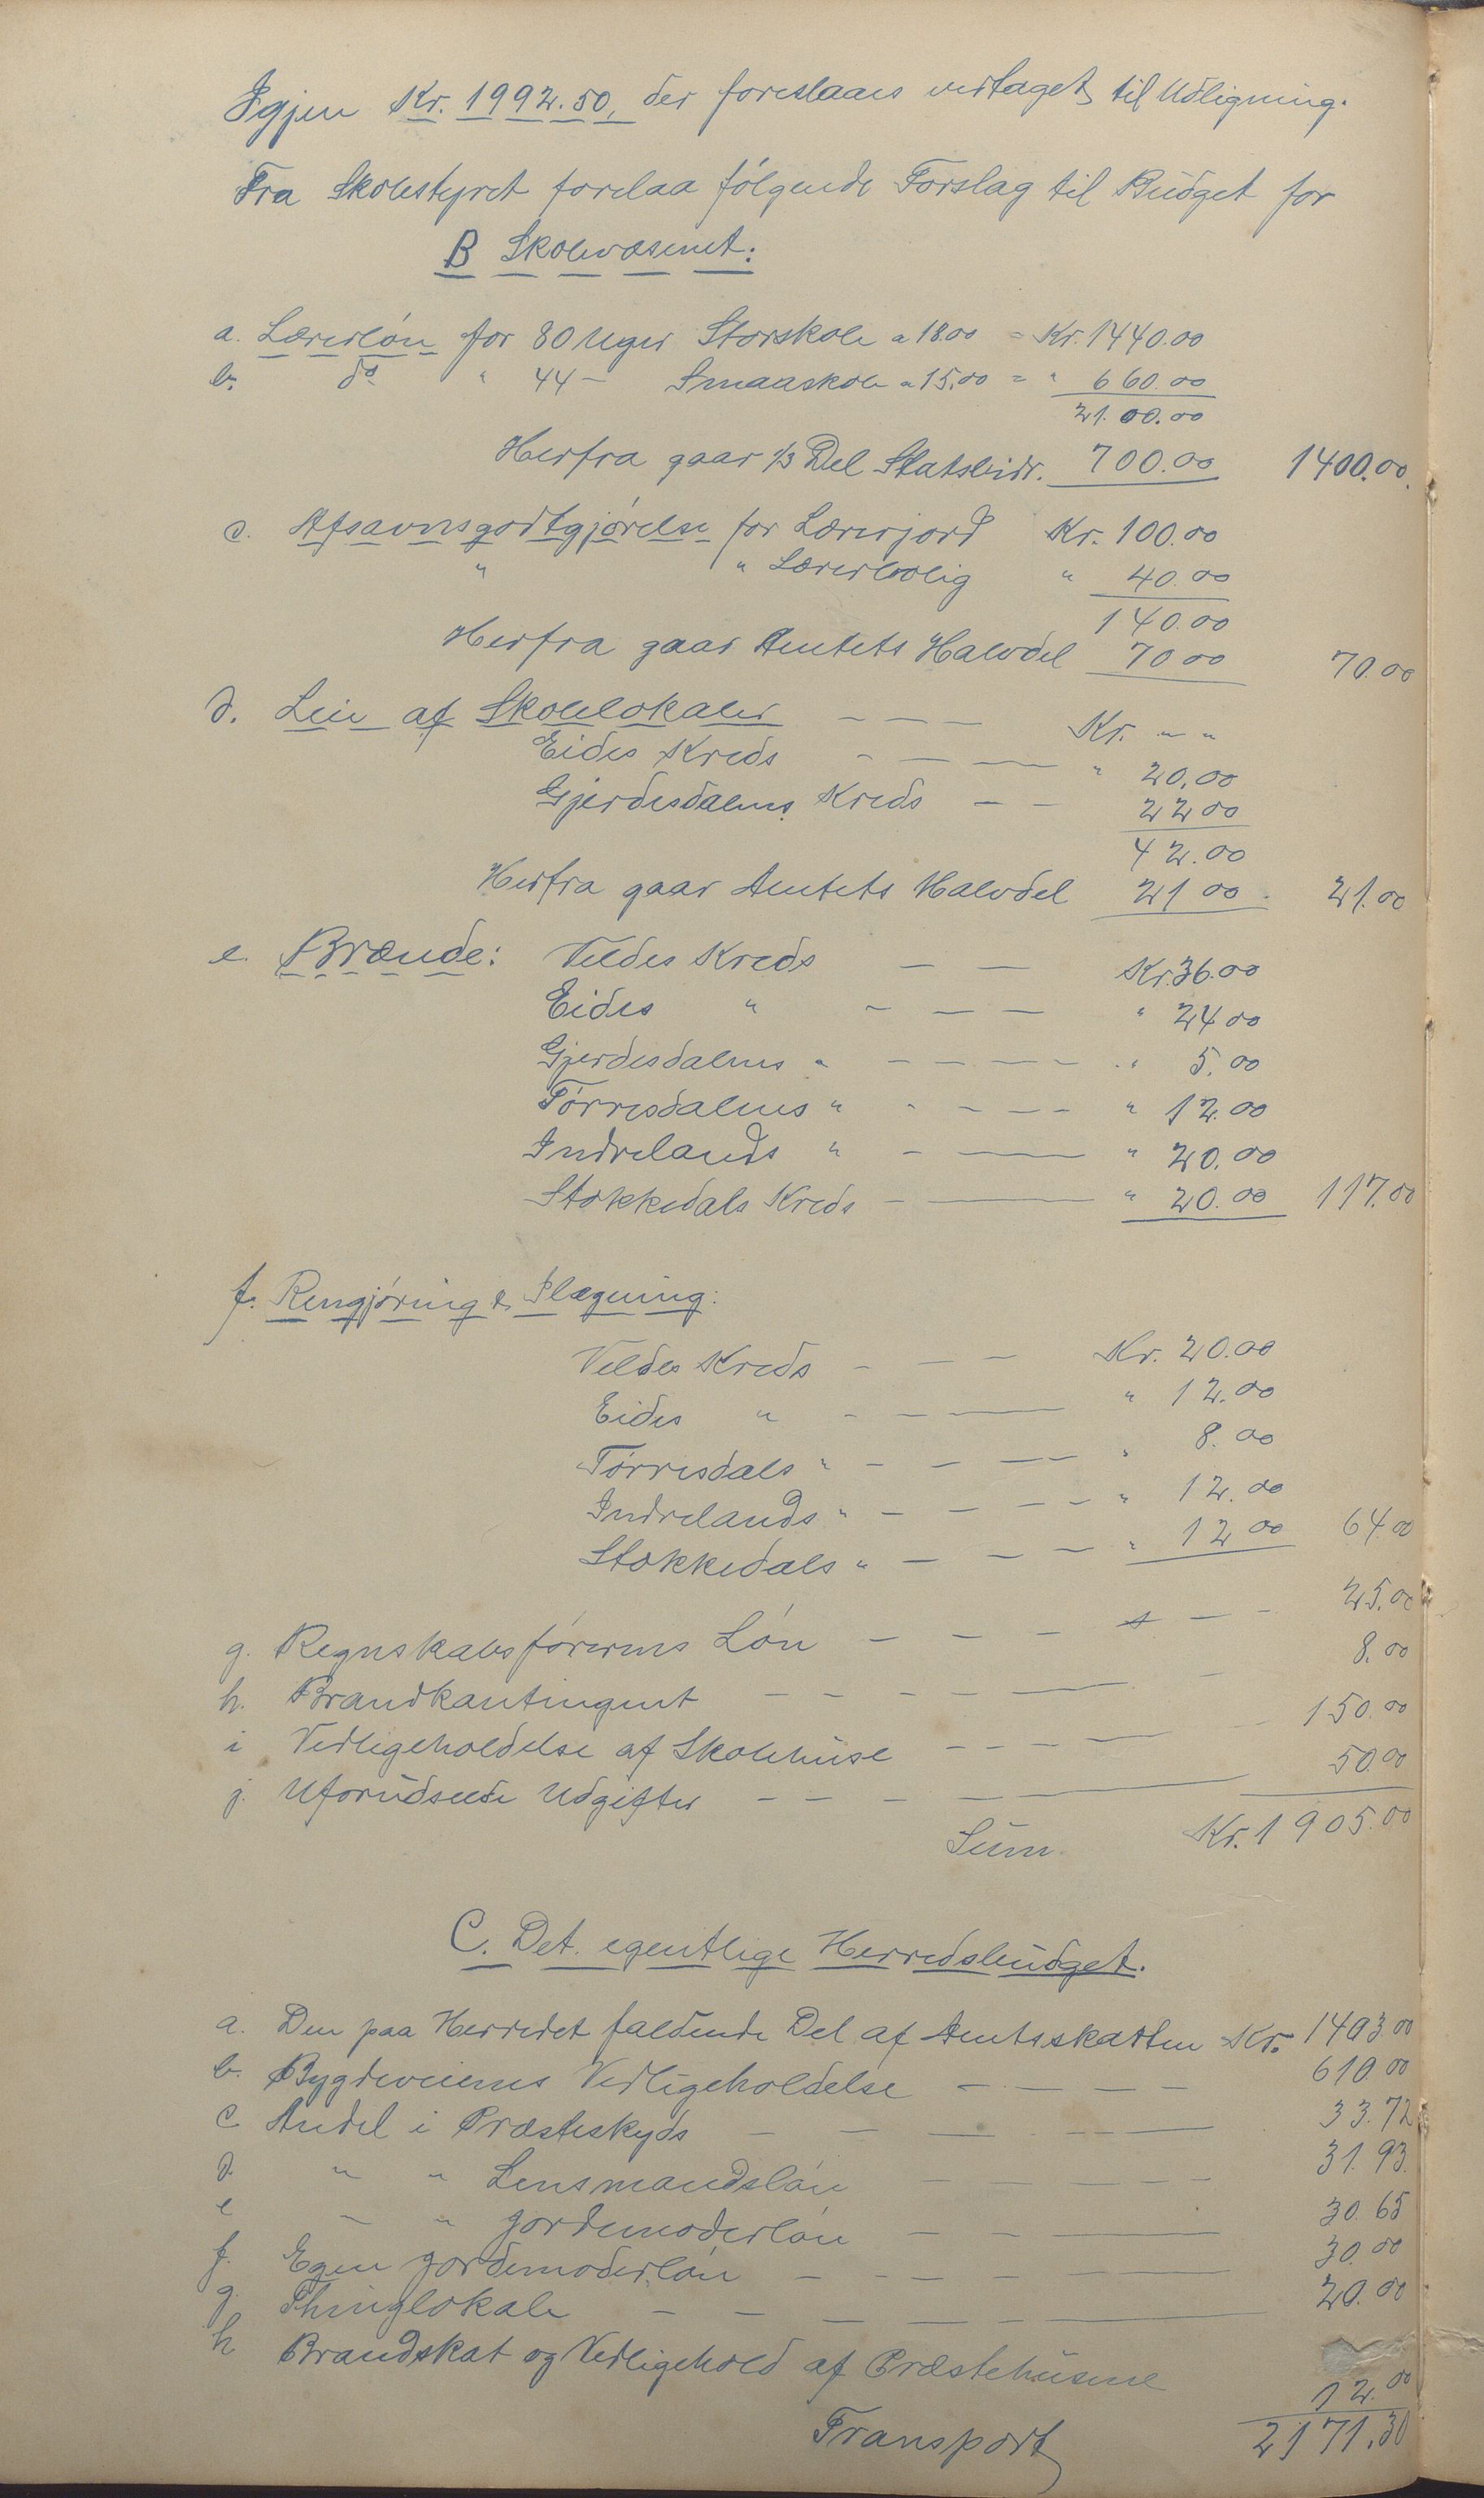 Igjen Kr. 1992.50, der foreslaaes vertaget til Udligning.
Fra Skolestyret forelaa følgende Forslag til Budget for
B Skolevæsenet:
a. Lærerløn for 80 Uger Storskole a 18.00 = Kr. 1440.00
b. do " 44 — Smaaskole a 15.00 = " 660.00
2100.00
Herfra gaar 1/3 Del Statsbidr. 700.00 1400.00.
c. Afsavnsgodtgjørelse for Lærerjord Kr. 100.00
" " Lærerbolig " 40.00
140.00
Herfra gaar Amtets Halvdel 70 00 70.00
d. Leie af Skolelokaler — — — Kr. " "
Eides Kreds — — — " 20.00
Gjerdesdalens Kreds — — 22 00
42.00
Herfra gaar Amtets Halvdel 21 00. 21.00
e. Brænde: Veldes Kreds — — Kr. 36.00
Eides " — — — " 24 00
Gjerdesdalens " — — — — " 5.00
Tørresdalens " — — — — " 12.00
Indrelands " — — " 20.00
Stokkedals Kreds — — " 20.00 117.00
f. Rengjøring & Plægning:
Veldes Kreds — — — Kr. 20.00
Eides " — — — " 12.00
Tørresdals " — — — " 8.00
Indrelands " — — — — " 12.00
Stokkedals " — — — " 12 00 64.00
g. Regnskabsførerens Løn — — — — — 25.00
h. Brandkontingent — — — — — — 8.00
i Vedligeholdelse af Skolehuse — — — — — 150.00
j. Uforudseede Udgifter — — — — 50.00
Sum Kr. 1905.00
C. Det egentlige Herredsbudget.
a. Den paa Herredet faldende Del af Amtsskatten Kr. 1403.00
b. Bygdeveienes Vedligeholdelse — — — — 610.00
c Andel i Præsteskyds — — — — — 33.72
d. " " Lensmandsløn — — — — — 31.93.
e " " Jordemoderløn — — — 30.65
f. Egen Jordemoderløn — — — — — 30.00
g. Thinglokale — — — — — 20.00
h Brandskat og Vedligehold af Præstehusene 12.00
Transport 2171.30